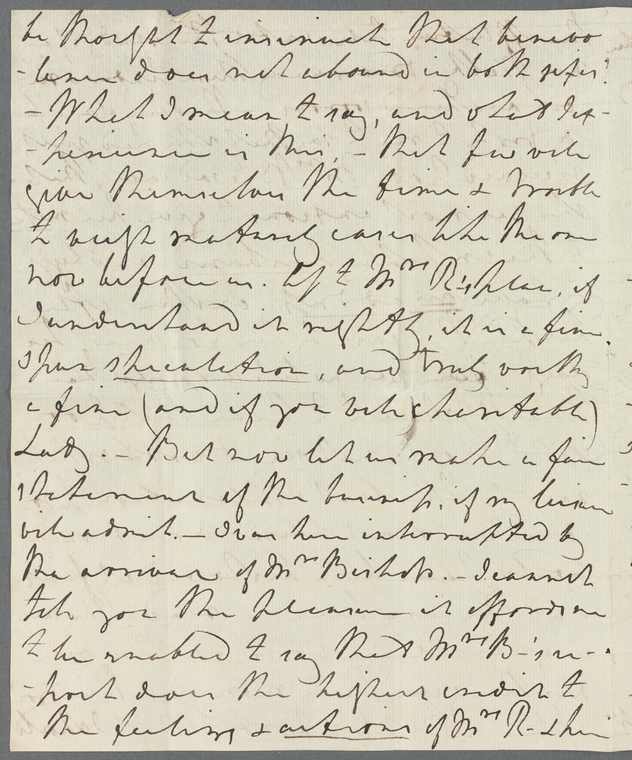 be thought to insinuate that benevo
-lence does not abound in both sexes!
- What I mean to say, and what I ex-
-perience is this, - that few will
give themselves the time & trouble
to weigh maturely cases like the one
now before us. As to Mrs R-'s plan, if
I understand it rightly, it is a fine
spun speculation, and truly worthy
a fine (and if you will charitable)
Lady. - But now let us make a fair
statement of the business, if my leisure
will admit. - I was here interrupted by
the arrival of Mrs Bishop. - I cannot
tell you the pleasure it affords me
to be enabled to say that Mrs B-'s re-
-port does the highest credit to
the feelings & actions of Mrs R- & her